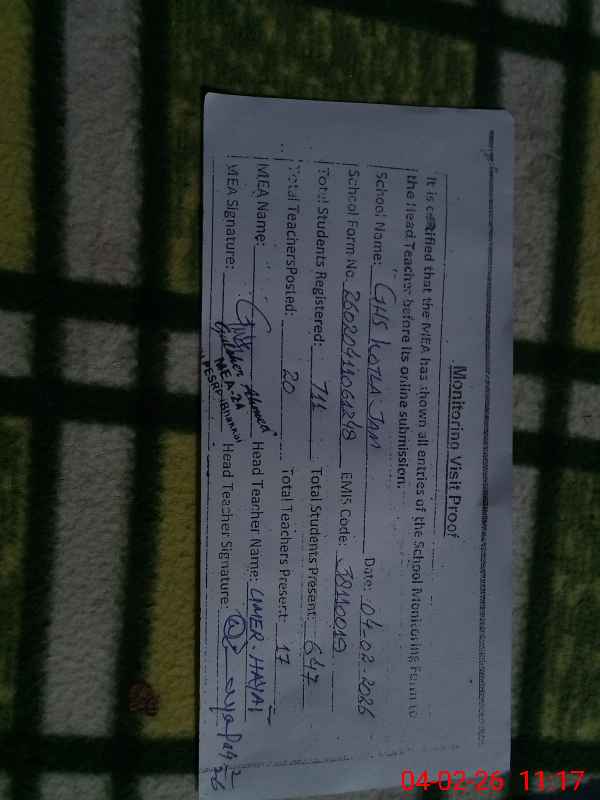 Monitoring Visit Proof
It is certified that the MEA has shown all entries of the School Monitoring Form to
the Head Teacher before its online submission.
School Name: GHS KOTLA JAM Date: 04-02-2026
School Form No. 26020411061248 EMIS Code: 38110019
Total Students Registered: 711 Total Students Present: 647
Total Teachers Posted: 20 Total Teachers Present 17
MEA Name: Ahmed Head Teacher Name: UMER HAYAT
MEA Signature: Head Teacher Signature:
MEA-24
04-02-26 11:17